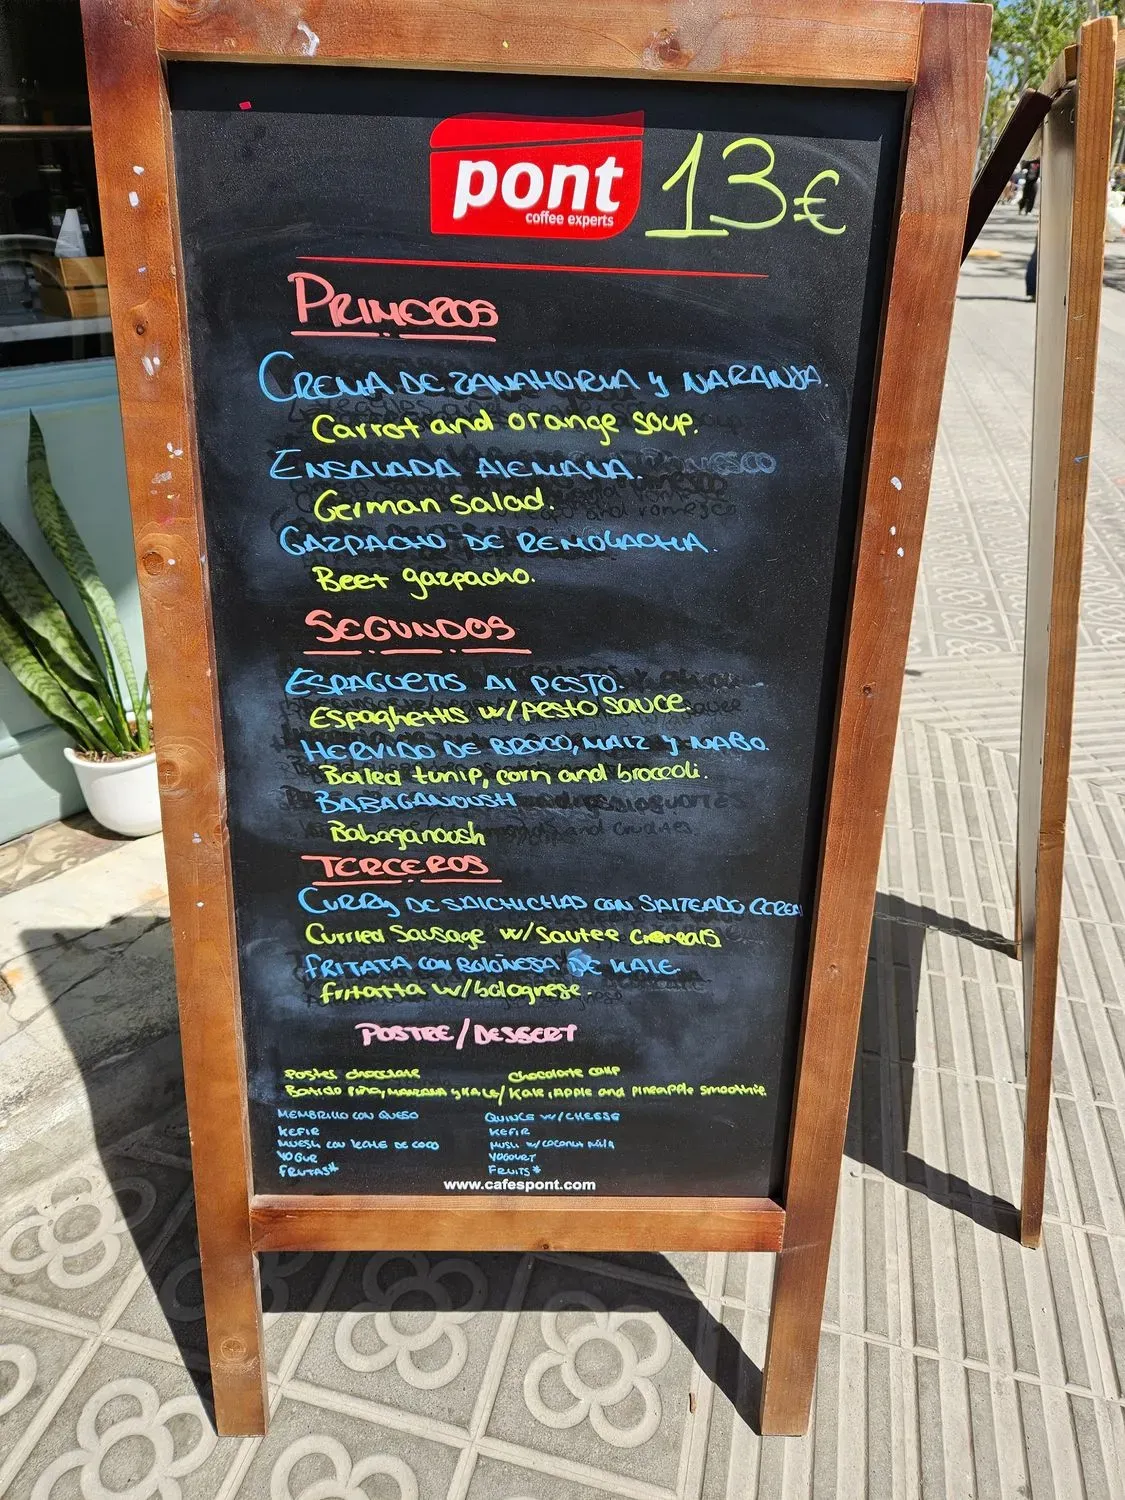 pont
coffee experts
13€
PRIMEROS
CREMA DE ZANAHORIA Y NARANJA.
Carrot and orange soup.
ENSALADA ALEMANA.
German Salad.
GAZPACHO DE REMOLACHA.
Beet gazpacho.
SEGUNDOS
ESPAGUETIS AL PESTO.
Espaghettis w/pesto sauce.
HERVIDO DE BROCO, MAIZ Y NABO.
Boiled turnip, corn and broccoli.
BABAGANOUSH
Babaganoush
TERCEROS
CURRY DE SALCHICHAS CON SALTEADO CEREAL
Curried Sausage w/Sautee
FRITATA CON BOLOÑESA DE KALE
fritatta w/bolognese.
POSTRE/DESSERT
Postes chocolate chocolate cake
Batido PIÑA, MANZANA Y KALE/ Kale, Apple and pineapple smoothie.
MEMBRILLO CON QUESO QUINCE W/CHEESE
KEFIR KEFIR
MUESLI CON LECHE DE COCO MUSLI W/COCONUT MILK
YOGUR YOGOURT
FRUTAS* FRUITS*
www.cafespont.com